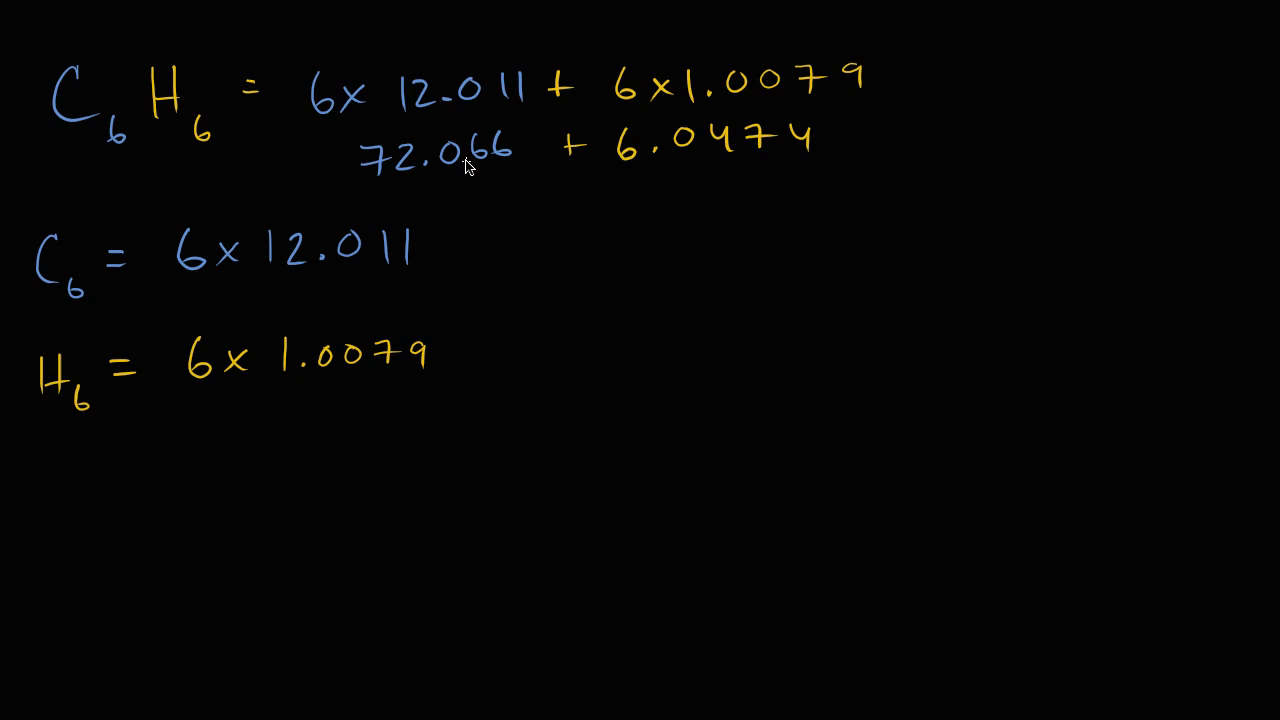 C₆H₆ = 6x 12.011 + 6x1.0079
72.066 + 6.0474
C₆ = 6x 12.011
H₆ = 6x 1.0079